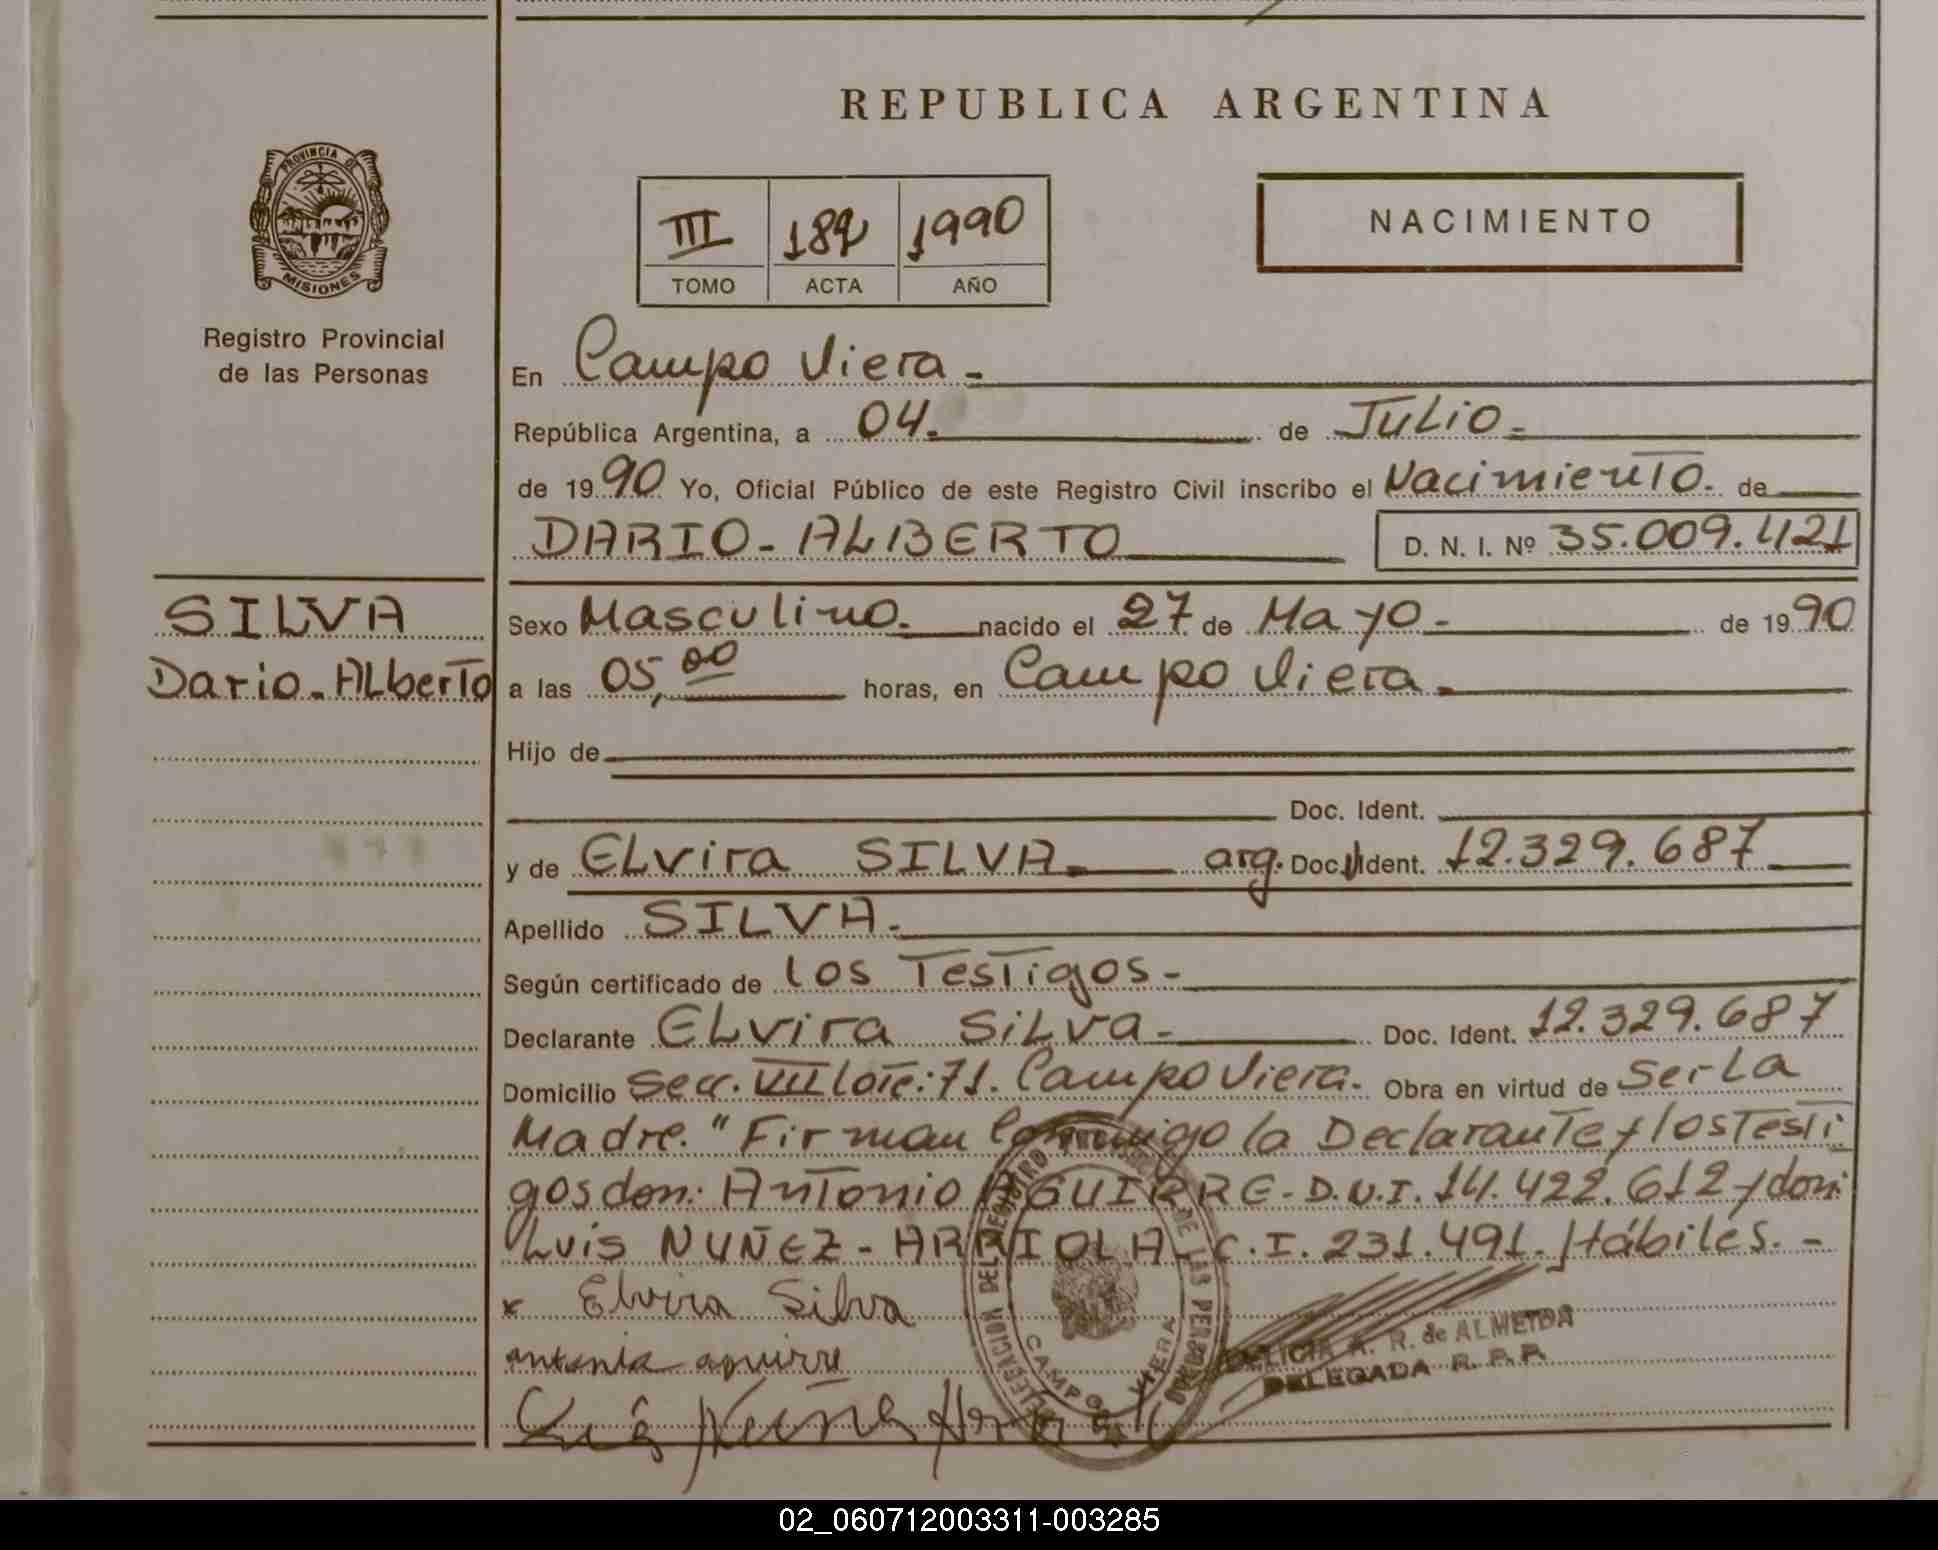 REPUBLICA ARGENTINA
PROVINCIA DE
MISIONES
Registro Provincial
de las Personas
III 189 1990
TOMO ACTA AÑO
NACIMIENTO
En Campo Viera.-
República Argentina, a 04.- de Julio.-
de 1990 Yo, Oficial Público de este Registro Civil inscribo el Nacimiento. de
DARIO-ALBERTO D. N. I. Nº 35.009.421
SILVA
Dario-ALberTo
Sexo Masculino. nacido el 27 de Mayo.- de 1990
a las 05,00 horas, en Campo Viera.-
Hijo de
Doc. Ident.
y de ELvira SILVA.- arg. Doc. Ident. 12.329.687
Apellido SILVA.-
Según certificado de los Testigos.-
Declarante ELvira SiLva.- Doc. Ident. 12.329.687
Domicilio Secc. VIII lote: 71. Campo Viera. Obra en virtud de Ser La
Madre. "Firman Conmigo la Declarante y los Testi
gos don: Antonio AGUIRRE-D.N.I. 14.422.612 y don:
Luis NUÑEZ-ARRIOLA-C.I. 231.491. Hábiles.-
x Elvira Silva
antonio aguirre
Luis Nuñez
DELEGACION DEL REGISTRO PROVINCIAL DE LAS PERSONAS
CAMPO VIERA
A. R. de ALMEIDA
DELEGADA R. P. P.
02_060712003311-003285